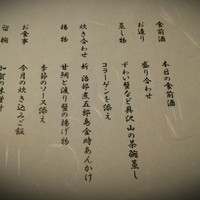 食前酒
本日の食前酒
お造り
盛り合わせ
蒸し物
ずわい蟹など具沢山の茶碗蒸し
コラーゲンを添え
炊き合わせ
新治部煮五郎島金時あんかけ
揚物
甘鯛と渡り蟹の揚げ物
季節のソース添え
お食事
今月の炊き込みご飯
留椀
加賀の味噌汁